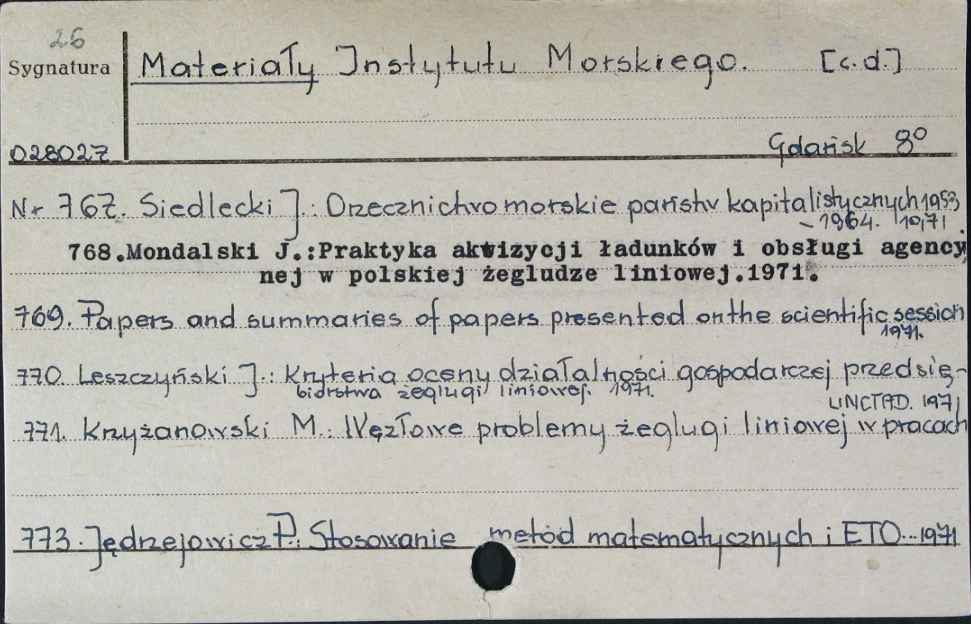 26
Sygnatura
Materiały Instytutu Morskiego. [c.d.]
028027
Gdańsk 8°
Nr 767. Siedlecki J.: Orzecznictwo morskie państw kapitalistycznych 1953
– 1964. 1971
768.Mondalski J.:Praktyka akwizycji ładunków i obsługi agency
nej w polskiej żegludze liniowej.1971.
769. Papers and summaries of papers presented on the scientific session
1971.
770. Leszczyński J.: Kryteria oceny działalności gospodarczej przedsię-
biorstwa żeglugi liniowej. 1971.
UNCTAD. 1971
771. Krzyżanowski M.: Węzłowe problemy żeglugi liniowej w pracach
773. Jędrzejowicz P.: Stosowanie metod matematycznych i ETO...1971